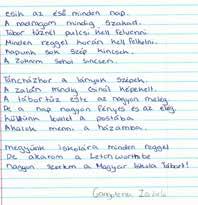 esik az eső minden nap.
A madnacom mindig szakad.
Tabor tűznél pulcsi kell felvenni
Minden reggel korán kell felkelni.
Napunk sok szép kincsek.
A Zoknim sehol sincsen.
Táncházkor a lányok szépek.
A zalán mindig csinál képeket.
A tábortűz este az nagyon meleg.
De a nap nagyon fényes és az elég.
küldünk levelet a postába
Akarok menni a házamba.
megyünk iskolára minden reggel
De akarom a Letchworthbe
nagyon szeretem a Magyar iskola Tábort!